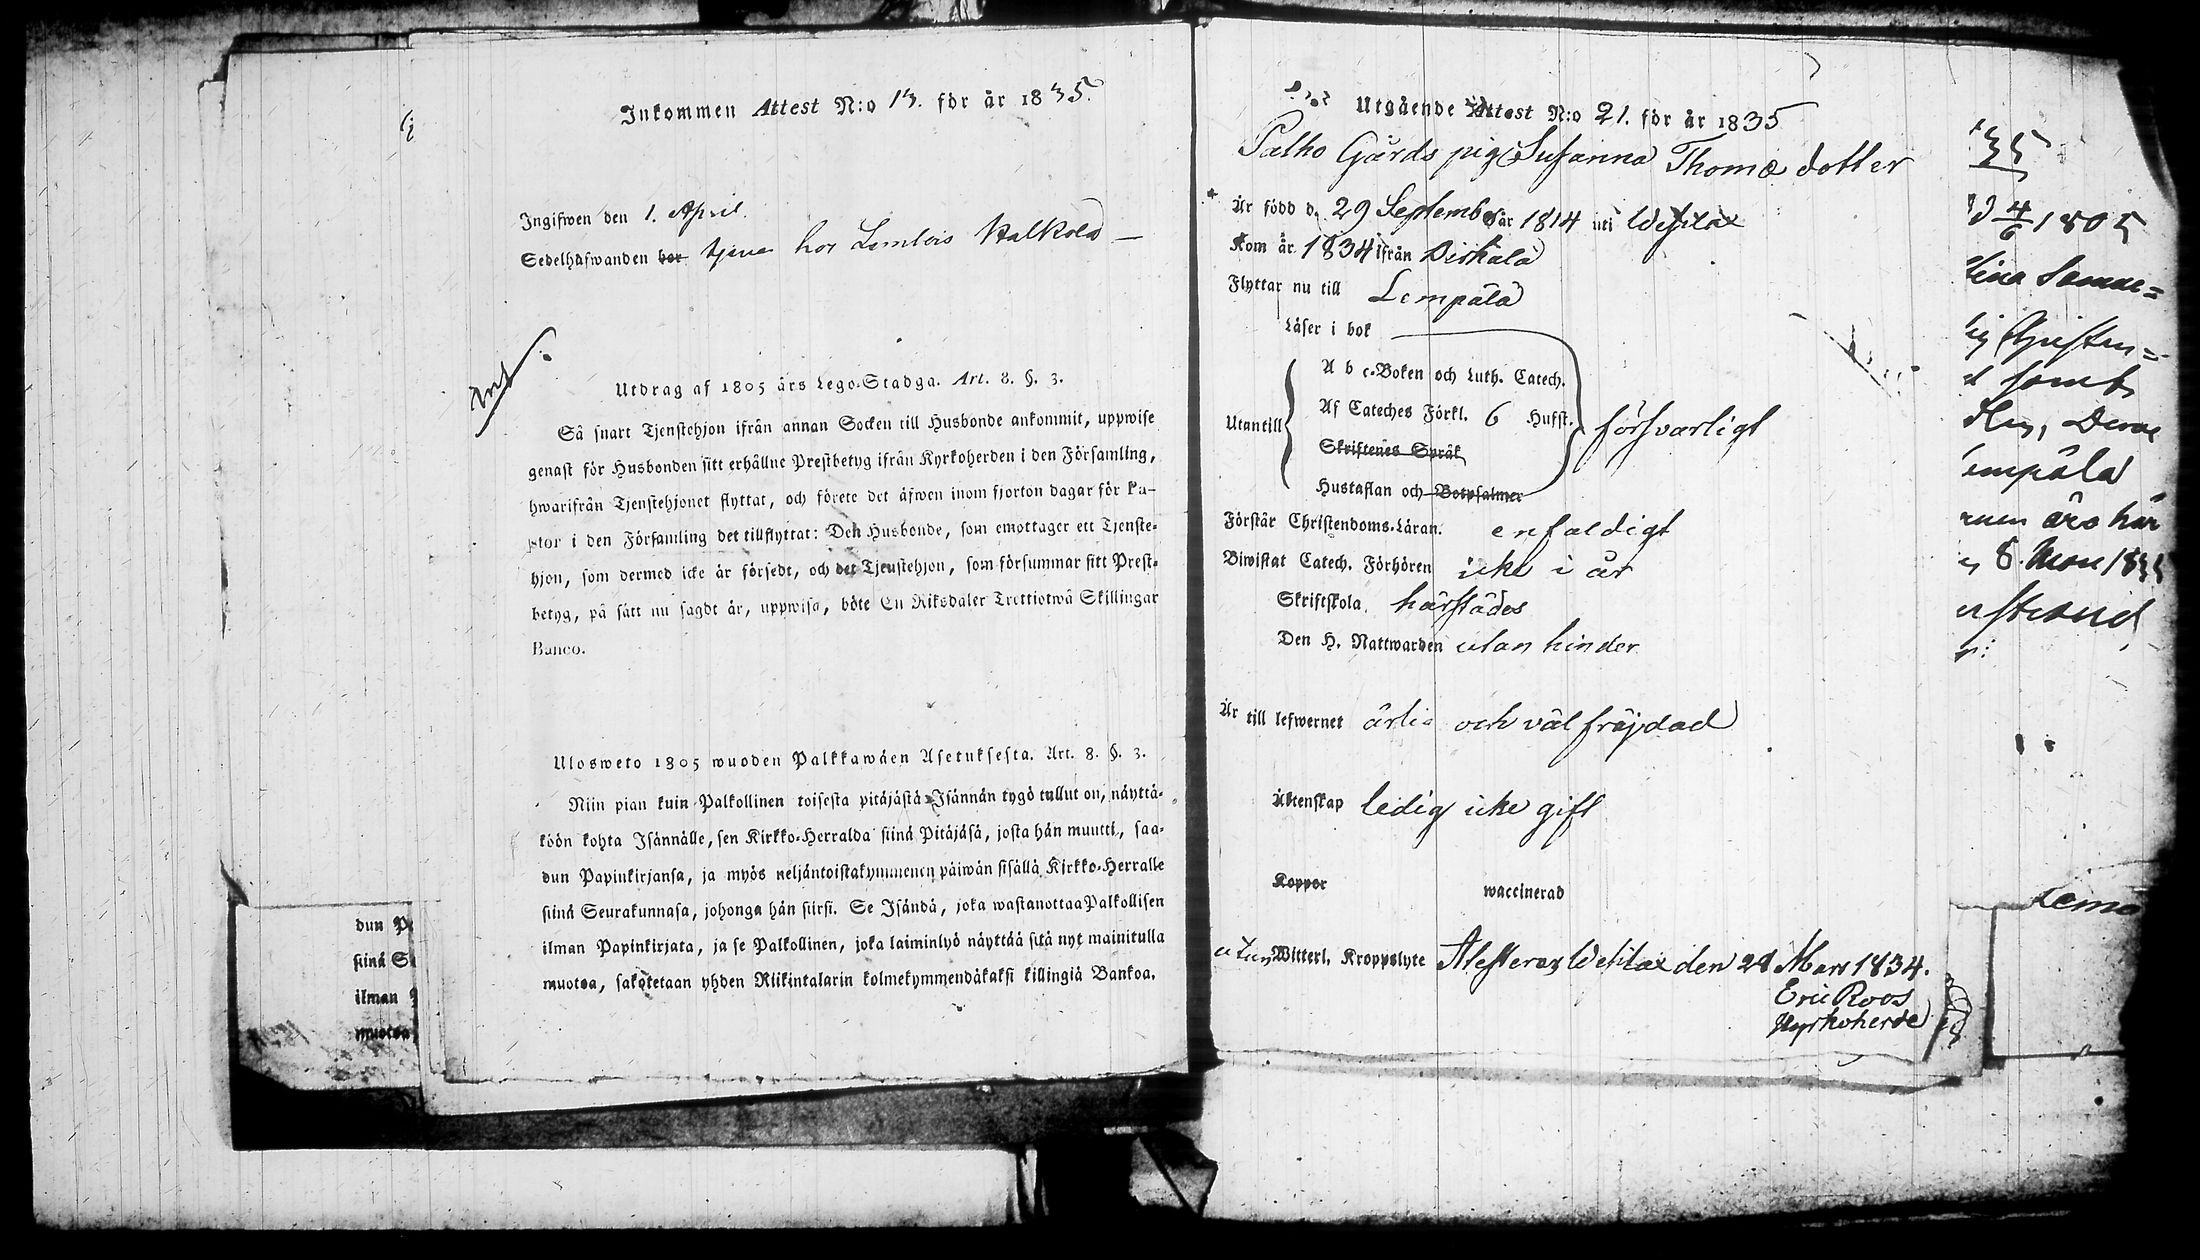 Inkommen Attest N:o 13. för år 1835.
Ingifwen den 1. April.
Sedelhafwanden bor tjena hos Lembois Walkola
Utdrag af 1805 års Lego-Stadga. Art. 8. §. 3.
Så snart Tjenstehjon ifrån annan Socken till Husbonde ankommit, uppwise
genast för Husbonden sitt erhållne Prestbetyg ifrån Kyrkoherden i den Församling,
hwarifrån Tjenstehjonet flyttat, och förete det äfwen inom fjorton dagar för Pa-
stor i den Församling det tillflyttat: Den Husbonde, som emottager ett Tjenste-
hjon, som dermed icke är försedt, och det Tjenstehjon, som försummar sitt Prest-
betyg, på sätt nu sagdt är, uppwisa, böte En Riksdaler Trettiotwå Skillingar
Banco.
Ulosweto 1805 wuoden Palkkawäen Asetuksesta. Art. 8. §. 3.
Niin pian kuin Palkollinen toisesta pitäjästä Isännän tygö tullut on, näyttä-
köön kohta Isännälle, sen Kirkko-Herralda siinä Pitäjäsä, josta hän muutti, saa-
dun Papinkirjansa, ja myös neljäntoistakymmenen päiwän sisällä Kirkko-Herralle
siinä Seurakunnasa, johonga hän siirsi. Se Isändä, joka wastanottaa Palkollisen
ilman Papinkirjata, ja se Palkollinen, joka laiminlyö näyttää sitä nyt mainitulla
muotoa, sakotetaan yhden Riikintalarin kolmekymmendäkaksi killingiä Bankoa.
dun P
siinä S
ilman
muotoa
Utgående Attest N:o 21. för år 1835
Palho Gårds pig Susanna Thomæ dotter
Är född d. 29 September år 1814 uti Wesilax
Kom år 1834 ifrån Birkala
Flyttar nu till Lempälä
Läser i bok
A b c-Boken och Luth. Catech.
Utantill Af Cateches Förkl. 6 Hufst. försvarligt
Skriftenes Språk
Hustaflan och Botpsalmer
Förstår Christendoms-Läran. enfaldigt
Biwistat Catech. Förhören icke i år
Skriftskola härstädes
Den H. Nattwarden utan hinder
Är till lefwernet ärlig och väl fräjdad
Äktenskap ledig icke gift
Koppor waccinerad
utan Witterl. Kroppslyte Attesteras Wesilax den 28 Mars 1834.
Eric Roos
Kyrkoherde
35
4/6 1805
empälä
äro här
8.
Lemp